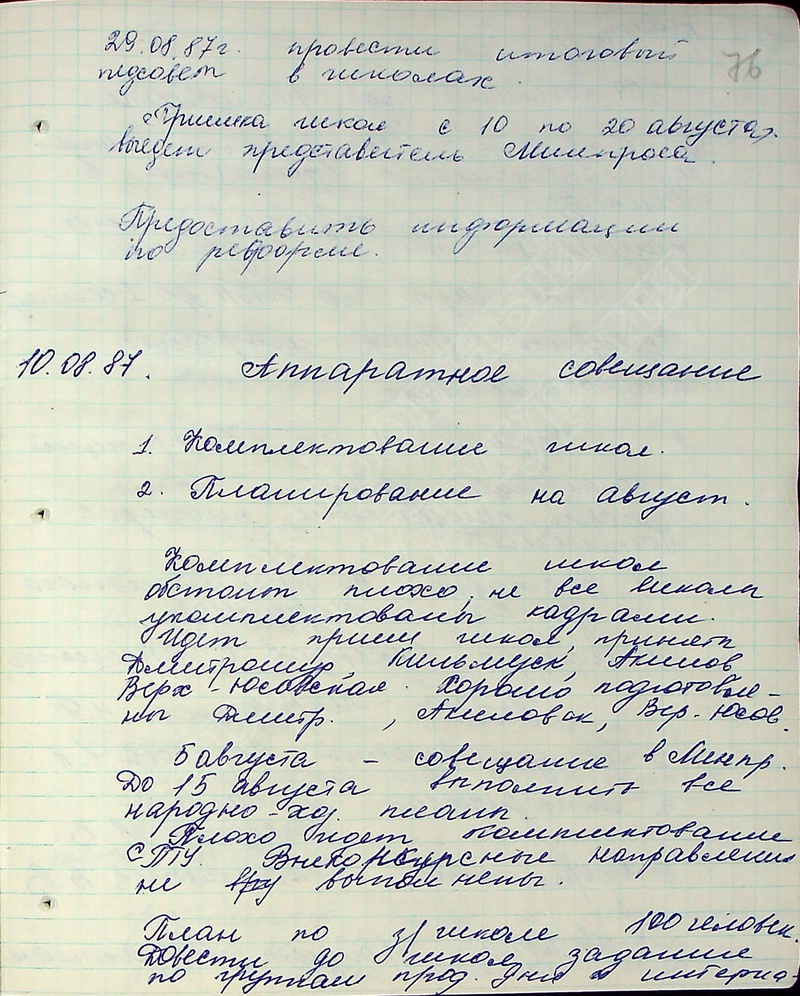 76
29.08.87г. провести итоговый
педсовет в школах.
"Приемка школ с 10 по 20 августа".
выедет представитель Минпроса.
Предоставить информации
по реформе.
10.08.87. Аппаратное совещание
1. Комплектование школ.
2. Планирование на август.
Комплектование школ
обстоит плохо, не все школы
укомплектованы кадрами.
Идет прием школ, приняты
Кильмуск, Акилов
Верх-Юсовская. Хорошо подготовле-
ны Дмитр., Акиловск, Вер. Юсов.
5 августа - совещание в Минпр.
До 15 августа выполнить все
народно-хоз. планы.
Плохо идет комплектование
СПТУ. Внеконкурсные направления
не выполнены.
План по з/школе 100 человек.
Довести до школ задание
по группам прод. дня и интерна-